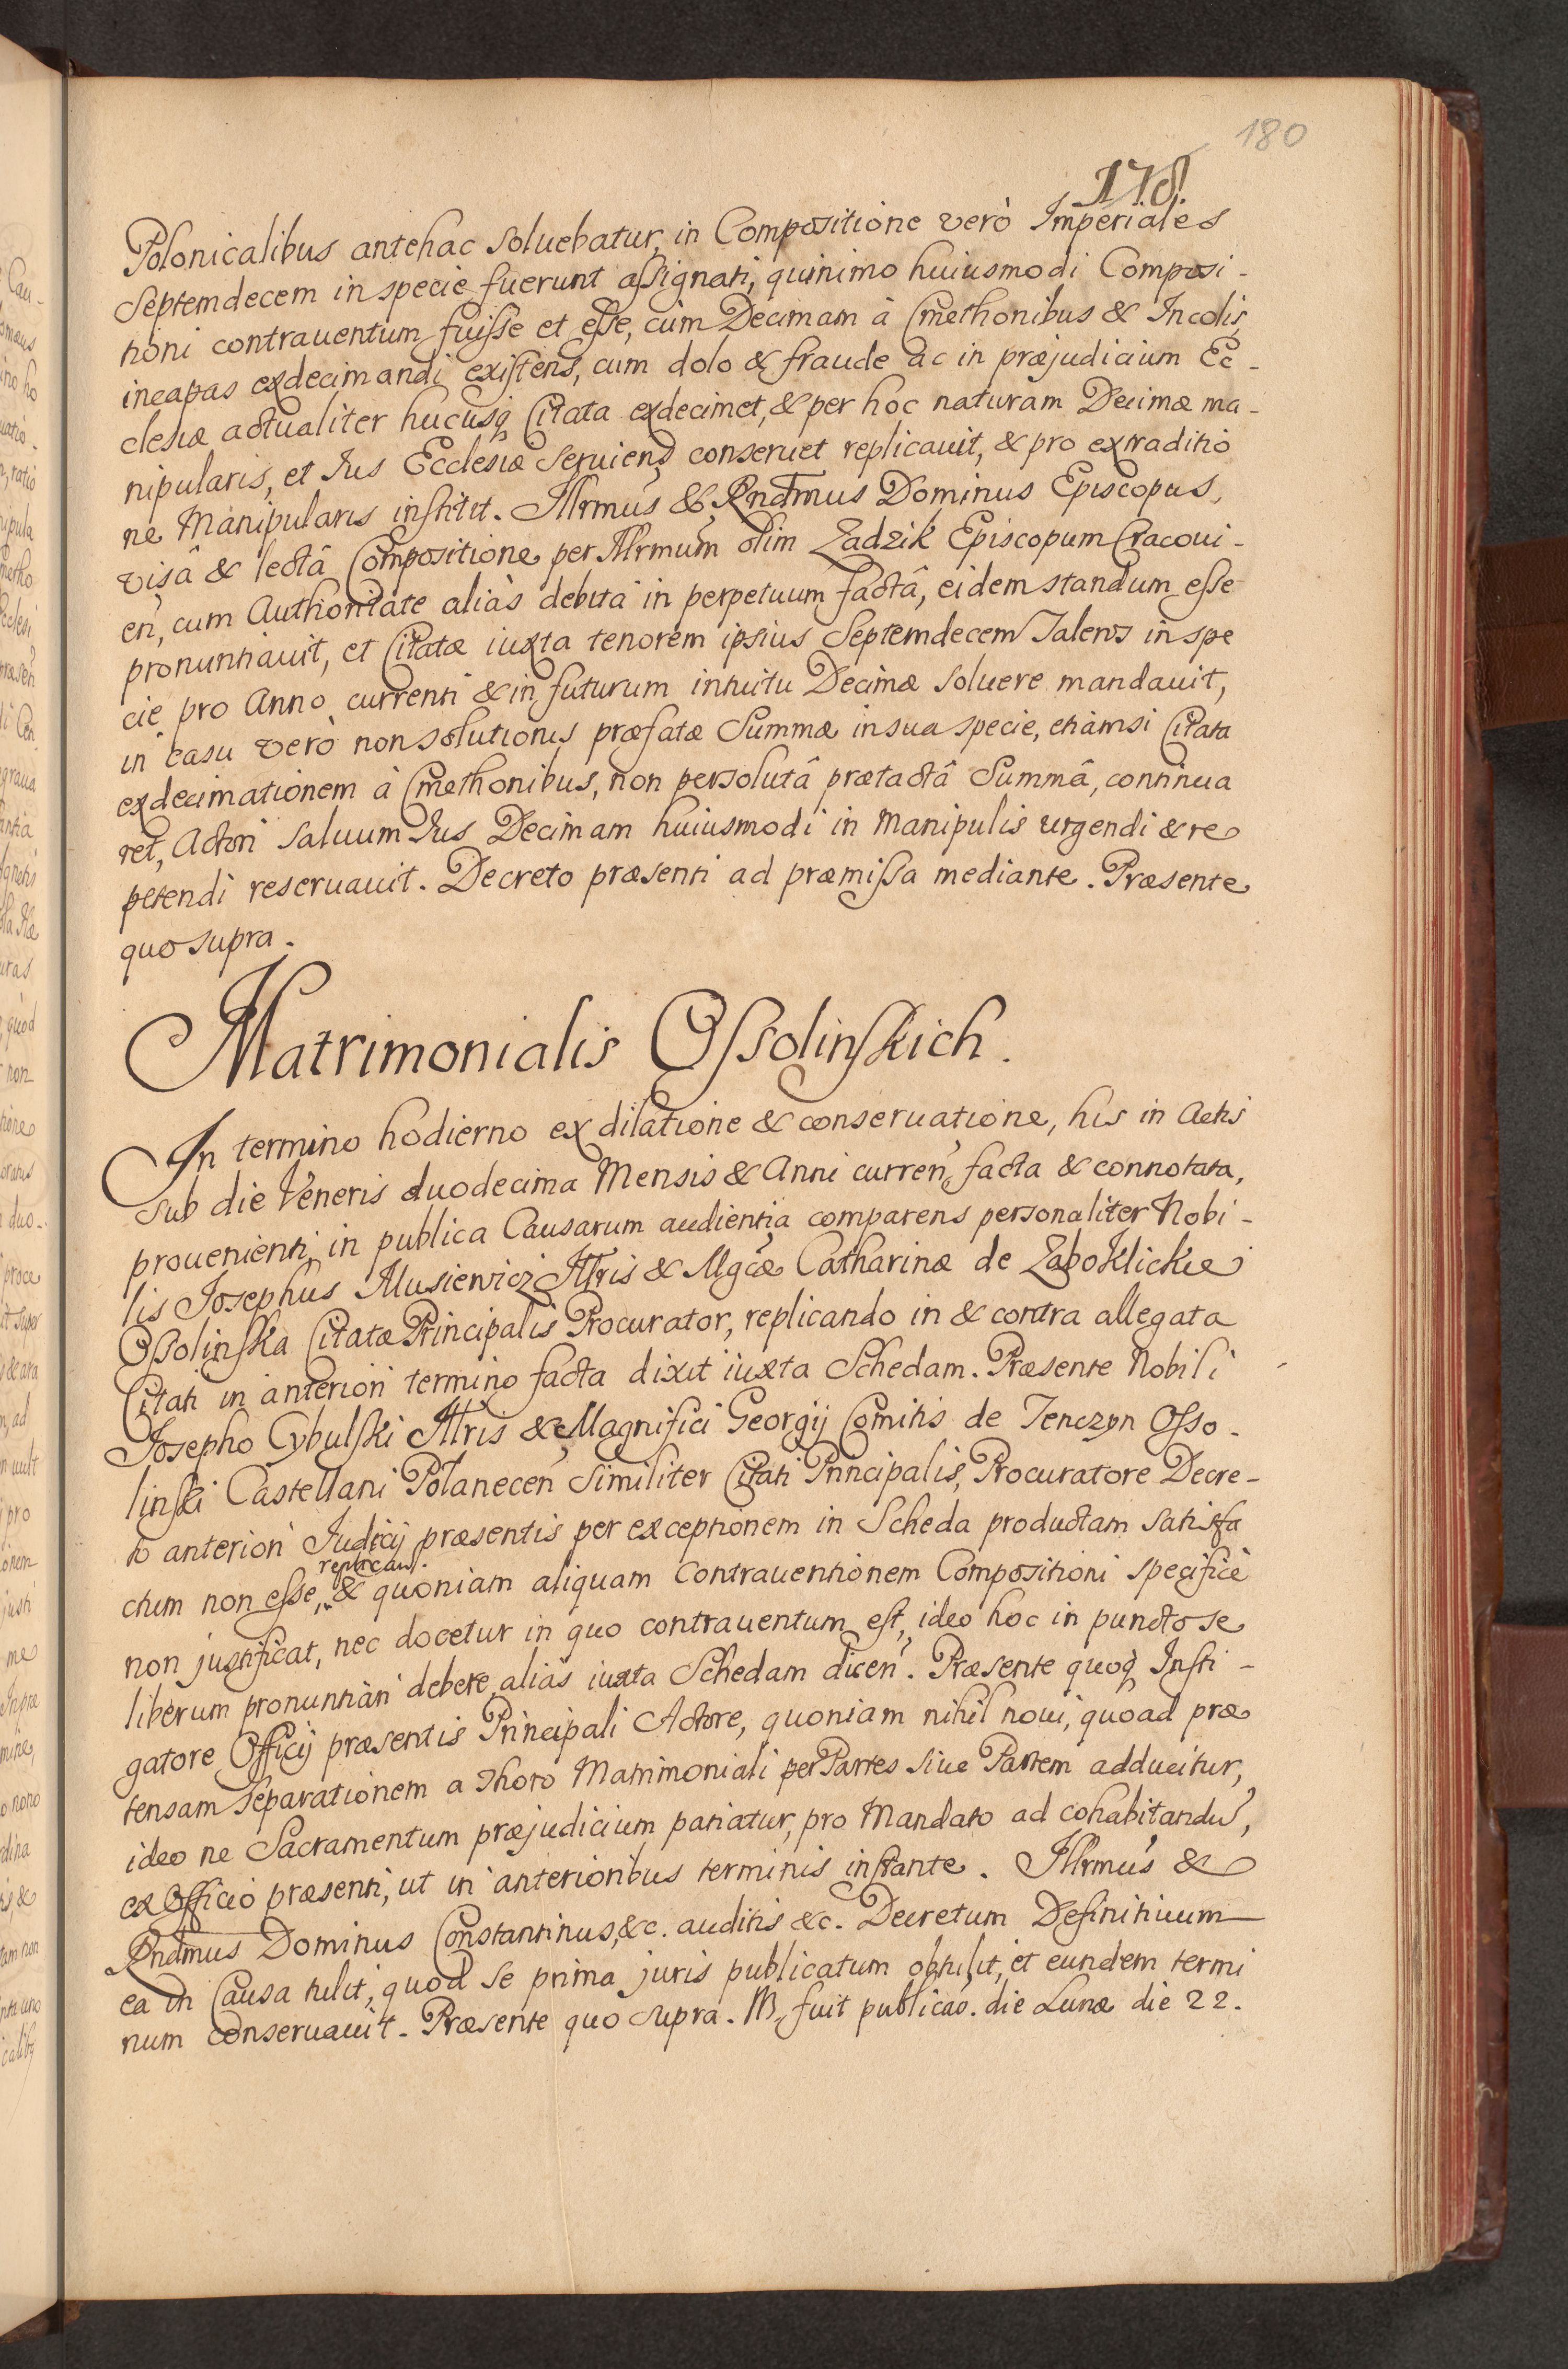 180
178.
Polonicalibus antehac soluebatur, in Compositione verò Imperiales
Septemdecem in specie fuerunt assignati, quinimo huiusmodi Composi-
tioni contrauentum fuisse et esse, cùm Decimam à Cmethonibus & Incolis,
incapas exdecimandi existens, cum dolo & fraude ac in præjudicium Ec-
clesiæ actualiter hucusq Citata exdecimet, & per hoc naturam Decimæ ma-
nipularis, et Jus Ecclesiæ seruiens conseruet replicauit, & pro extraditio
ne Manipularis institit. Illrmus & Rndmus Dominus Episcopus,
visâ & lectâ Compositione per Illrmum olim Zadzik Episcopum Cracoui-
en, cum Authoritate aliàs debita in perpetuum factâ, eidem standum esse
pronuntiauit, et Citatæ iuxta tenorem ipsius Septemdecem Taleros in spe
cie pro Anno currenti & in futurum intuitu Decimæ soluere mandauit,
in casu verò non solutionis præfatæ Summæ in sua specie, etiamsi Citata
exdecimationem à Cmethonibus, non persolutâ prætactâ Summâ, continua
ret, Actori saluum Jus Decimam huiusmodi in Manipulis urgendi & re
petendi reseruauit. Decreto præsenti ad præmissa mediante. Præsente
quo supra.
Matrimonialis Ossolinskich.
In termino hodierno ex dilatione & conseruatione, his in Actis
sub die Veneris duodecima Mensis & Anni curren facta & connotata,
prouenienti, in publica Causarum audientia comparens personaliter Nobi-
lis Josephus Musiewicz Illris & Mgcæ Catharinæ de Zaboklickie
Ossolinska Citatæ Principalis Procurator, replicando in & contra allegata
Citati in anteriori termino facta dixit iuxta Schedam. Præsente Nobili
Josepho Cybulski Illris & Magnifici Georgij Comitis de Tenczyn Osso-
linski Castellani Polanecen similiter Citati Principalis, Procuratore Decre-
to anteriori Judicij præsentis per exceptionem in Scheda productam satisfa
replicau.
ctum non esse, & quoniam aliquam Contrauentionem Compositioni specificè
non justificat, nec docetur in quo contrauentum est, ideo hoc in puncto se
liberum pronuntiari debere, aliàs iuxta Schedam dicen. Præsente quoq Insti-
gatore Officij præsentis Principali Actore, quoniam nihil noui, quoad præ
tensam separationem a Thoro Matrimoniali per Partes siue Partem adducitur,
ideo ne Sacramentum præjudicium patiatur, pro Mandato ad cohabitandu,
ex Officio præsenti, ut in anterioribus terminis instante. Illrmus &
Rndmus Dominus Constantinus, &c. auditis &c. Decretum Definitiuum
ea in Causa tulit, quod se prima juris publicatum obtulit, et eundem termi
num conseruauit. Præsente quo supra. M. fuit publicao. die Lunæ die 22.